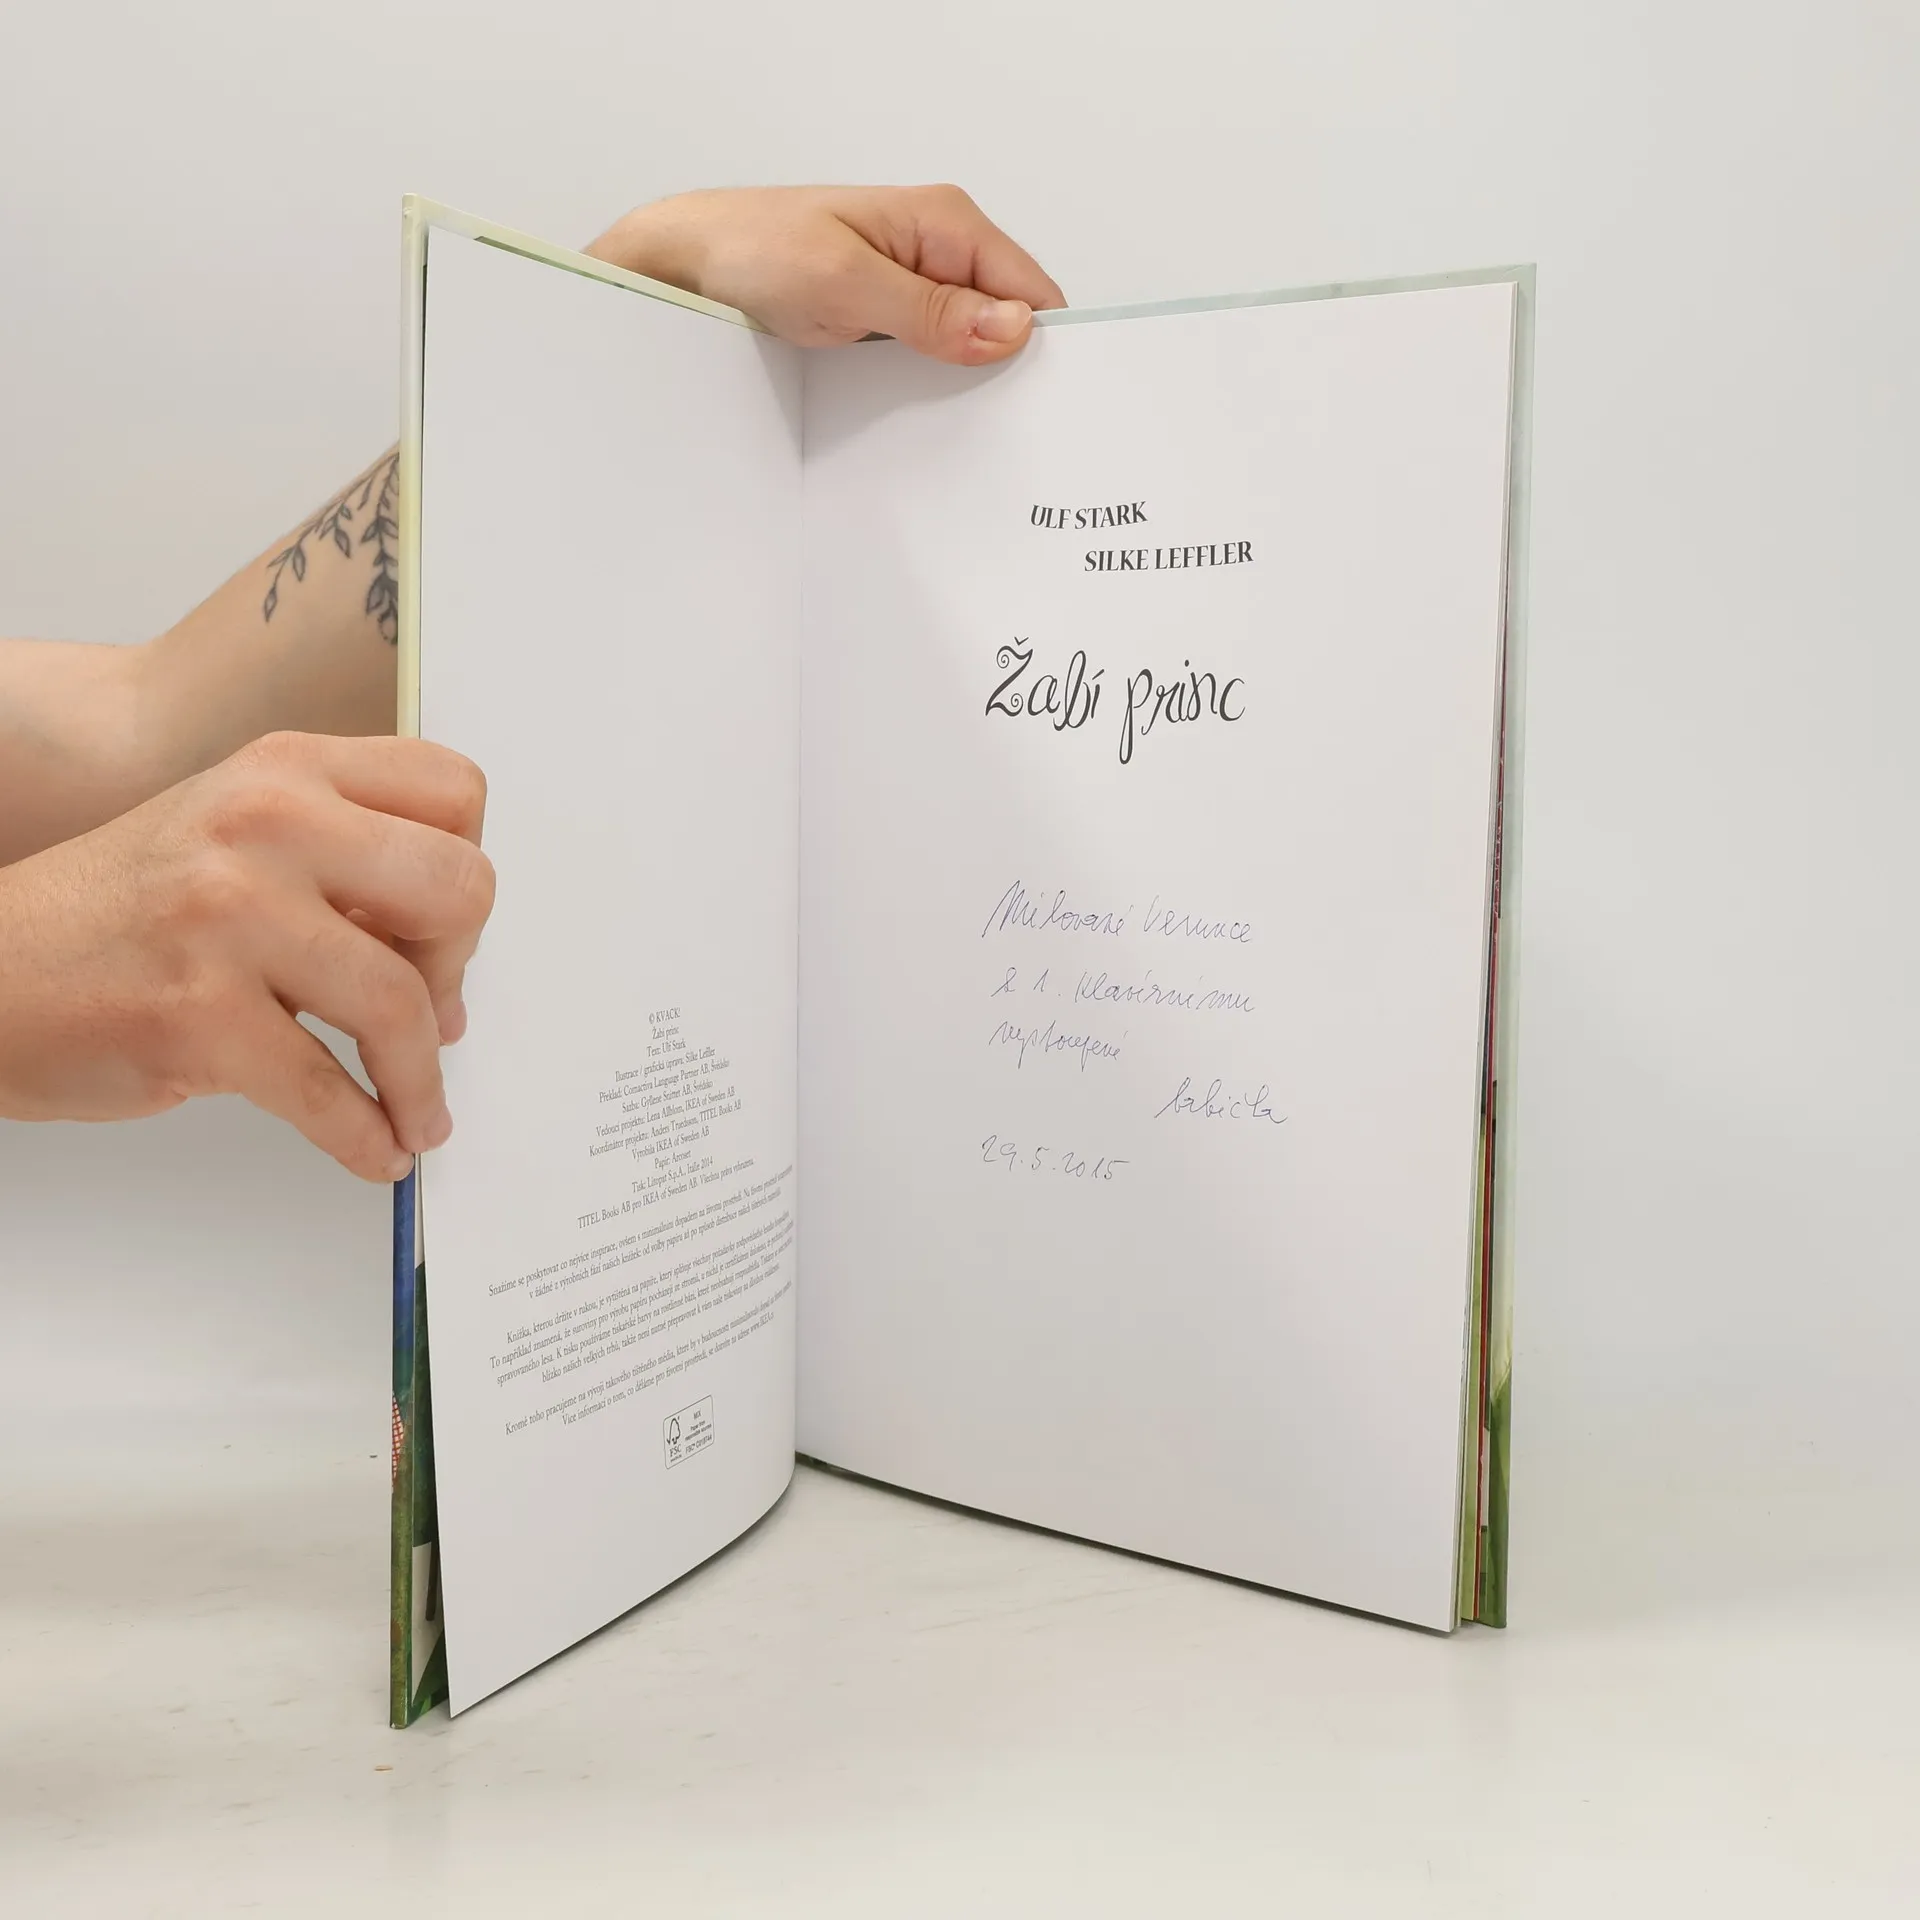 © KVACK!
Žabí princ
Text: Ulf Stark
Ilustrace / grafická úprava: Silke Leffler
Překlad: Comactiva Language Partner AB, Švédsko
Sazba: Gyllene Snittet AB, Švédsko
Vedoucí projektu: Lena Allblom, IKEA of Sweden AB
Koordinátor projektu: Anders Truedsson, TITEL Books AB
Vyrobila IKEA of Sweden AB
Papír: Arctic
Tisk: Litopat S.p.A., Itálie 2014
TITEL Books AB pro IKEA of Sweden AB. Všechna práva vyhrazena.
Snažíme se poskytovat co nejvíce inspirace, ovšem s minimálním dopadem na životní prostředí. Na životní prostředí
v žádné z výrobních fází našich knížek: od volby papíru až po způsob distribuce našich tištěných
Knížka, kterou držíte v rukou, je vytištěná na papíře, který splňuje všechny požadavky
To například znamená, že suroviny pro výrobu papíru pocházejí ze stromů, u nichž je certifikátem doloženo, že
spravovaného lesa. K tisku používáme tiskařské barvy na rostlinné bázi, které neobsahují rozpouštědla. Tiskne se
blízko našich velkých trhů, takže není nutné přepravovat k vám naše tiskoviny na dlouhou vzdálenost.
Kromě toho pracujeme na vývoji takového tištěného média, které by v budoucnosti
Více informací o tom, co děláme pro životní prostředí, se dozvíte na adrese www.IKEA.cz
FSC
MIX
Paper from
responsible sources
ULF STARK
SILKE LEFFLER
Žabí princ
Milované Verunce
k 1. klavírnímu
vystoupení
babička
29.5.2015